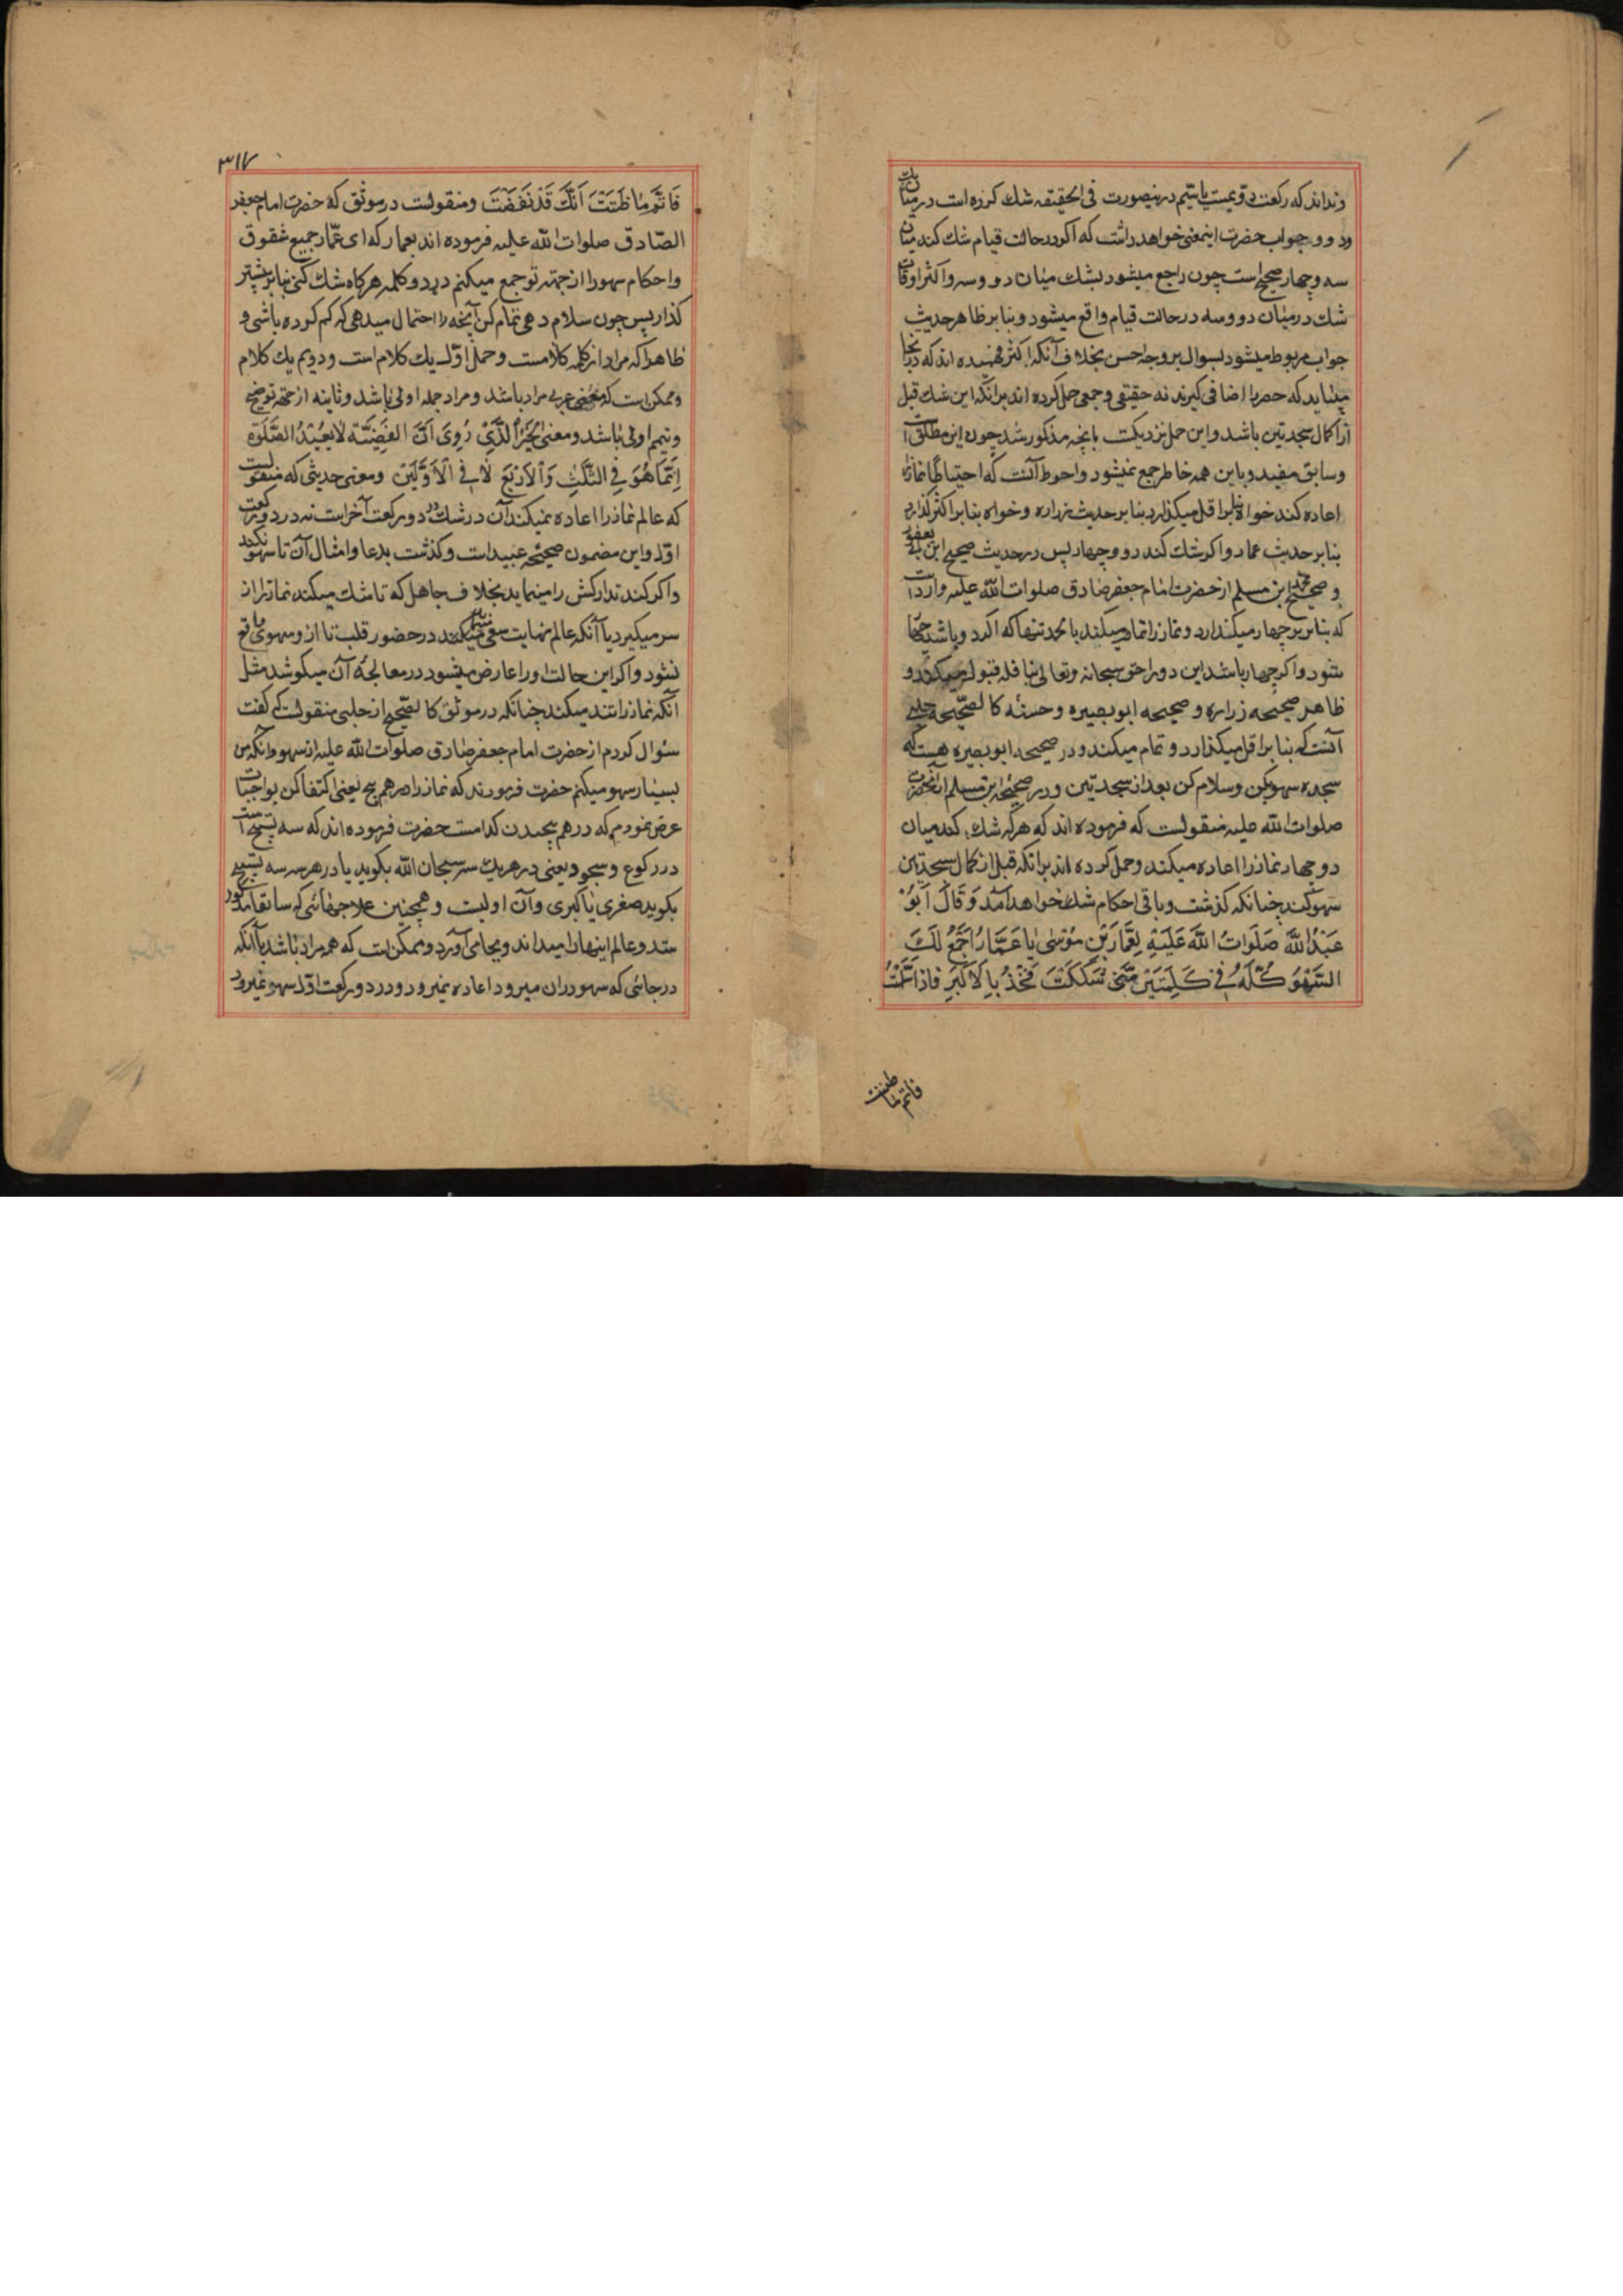 ونداند که رکعت دویمست یا سیم درینصورت فی الحقیقه شك کرده است در میان یك
ودو و جواب حضرت اینمعنی خواهد داشت که اگر در حالت قیام شك کند میان
سه و چهار صحیح است چون راجع میشود بشك میان دو و سه و اکثر اوقات
شك در میان دو و سه در حالت قیام واقع میشود و بنا بر ظاهر حدیث
جواب مربوط میشود بسوال بر وجه احسن بخلاف آنکه اکثر فهمیده اند که در اینجا
میباید که حصر را اضافی گیرند نه حقیقی و جمعی حمل کرده اند برانکه این شك قبل
از اکمال سجدتین باشد و این حمل نزدیکست بانچه مذکور شد چون این مطلق
وسابق مفید و باین همه خاطر جمع نمیشود و احوط آنست که احتیاطا نماز را
اعاده کند خواه بنا بر اقل میگذارد بنا بر حدیث زراره و خواه بنا بر اکثر گذارد
بنا بر حدیث عمار و اگر شك کند دو و چهار پس در حدیث صحیح ابن ابی یعفور
و صحیح محمد ابن مسلم از حضرت امام جعفر صادق صلوات الله علیه وارد است
که بنا بر چهار میگذارد و نماز را تمام میکند با حمد تنها که اگر دو باشد چهار
شود و اگر چهار باشد این دو را حق سبحانه و تعالی نافله قبول میکند و
ظاهر صحیحه زراره و صحیحه ابو بصیر و حسنه کالصحیحه حلبی
آنست که بنا بر اقل میگذارد و تمام میکند و در صحیحه ابو بصیره هست که
سجده سهو بکن و سلام کن بعد از سجدتین و در صحیحه ابن مسلم از آنحضرت
صلوات الله علیه منقولست که فرموده اند که هر که شك کند میان
دو چهار نماز را اعاده میکند و حمل کرده اند برانکه قبل از اکمال سجدتین
سهو کند چنانکه گذشت و باقی احکام شك خواهد آمد وَ قَالَ اَبُو
عَبْدُ اللّٰهِ صَلَوَاتُ اللّٰهِ عَلَیْهِ لِعَمَّارَ بْنِ مُوسٰی یَا عَمَّارُ اَجْمَعُ لَكَ
السَّهْوَ کُلَّهُ فِی کَلِمَتَیْنِ مَتٰی شَکَکْتَ فَخُذْ بِالْاَکْثَرِ فَاِذَا سَلَّمْتَ
فاتم ما ظننت
۳۱۷
فَاَتِمَّ مَا ظَنَنْتَ اَنَّكَ قَدْ نَقَصْتَ ومنقولست در موثق که حضرت امام جعفر
الصّادق صلوات الله علیه فرموده اند بعمار که ای عمّار جمیع شقوق
واحکام سهو را از جهة تو جمع میکنم در دو کلمه هرکاه شك کنی بنا بر بیشتر
گذار پس چون سلام دهی تمام کن آنچه را احتمال میدهی که کم کرده باشی و
ظاهرا که مراد از کلمه کلامست و حمل اوّل یك کلام است و دویم یك کلام
وممکن است که معنی عربی مراد باشد و مراد جمله اولی باشد و ثانیه از جهة توضیح
وتتیم اولی باشد و معنی الْخَبَرُ الَّذِیْ رُوِیَ اَنَّ الفَقِیْهَ لَا یُعِیْدُ الصَّلٰوةَ
اِنَّمَا هُوَ فِی الثَّلٰثِ وَالْاَرْبَعِ لَا فِی الْاَوَّلَیْنِ ومعنی حدیثی که منقولست
که عالم نماز را اعاده نمیکند آن در شك در دو رکعت آخر است نه در دو رکعت
اوّل و این مضمون صحیحه عبید است و گذشت بدعا و امثال آن تا سهو نکند
و اگر کند تدارکش را مینماید بخلاف جاهل که تا شك میکند نماز را از
سر میگیرد یا آنکه عالم نهایت سعی میکند در حضور قلب تا از و سهوی واقع
نشود و اگر این حالت او را عارض میشود در معالجه آن میکوشد مثل
آنکه نماز را تند میکند چنانکه در موثق کالصّحیح از حلبی منقولست که گفت
سئوال کردم از حضرت امام جعفر صادق صلوات الله علیه از سهو و آنکه من
بسیار سهو میکنم حضرت فرمودند که نماز را درهم پیچ یعنی اکتفا کن بواجبات
عرض نمودم که درهم پیچیدن کدامست حضرت فرموده اند که سه تسبیح است
در رکوع و سجود یعنی در هر یك سه سبحان الله بگوید یا در هر سه تسبیح
بگوید صغری یا کبری و آن اولیست و همچنین علاجهائی که سابقا مذکور
شد و عالم اینها را میداند و بجا می آورد و ممکن است که هر مراد باشد یا آنکه
در جائی که سهو دران میرود اعاده نمیرود و در دو رکعت اوّل سهو نمیرود